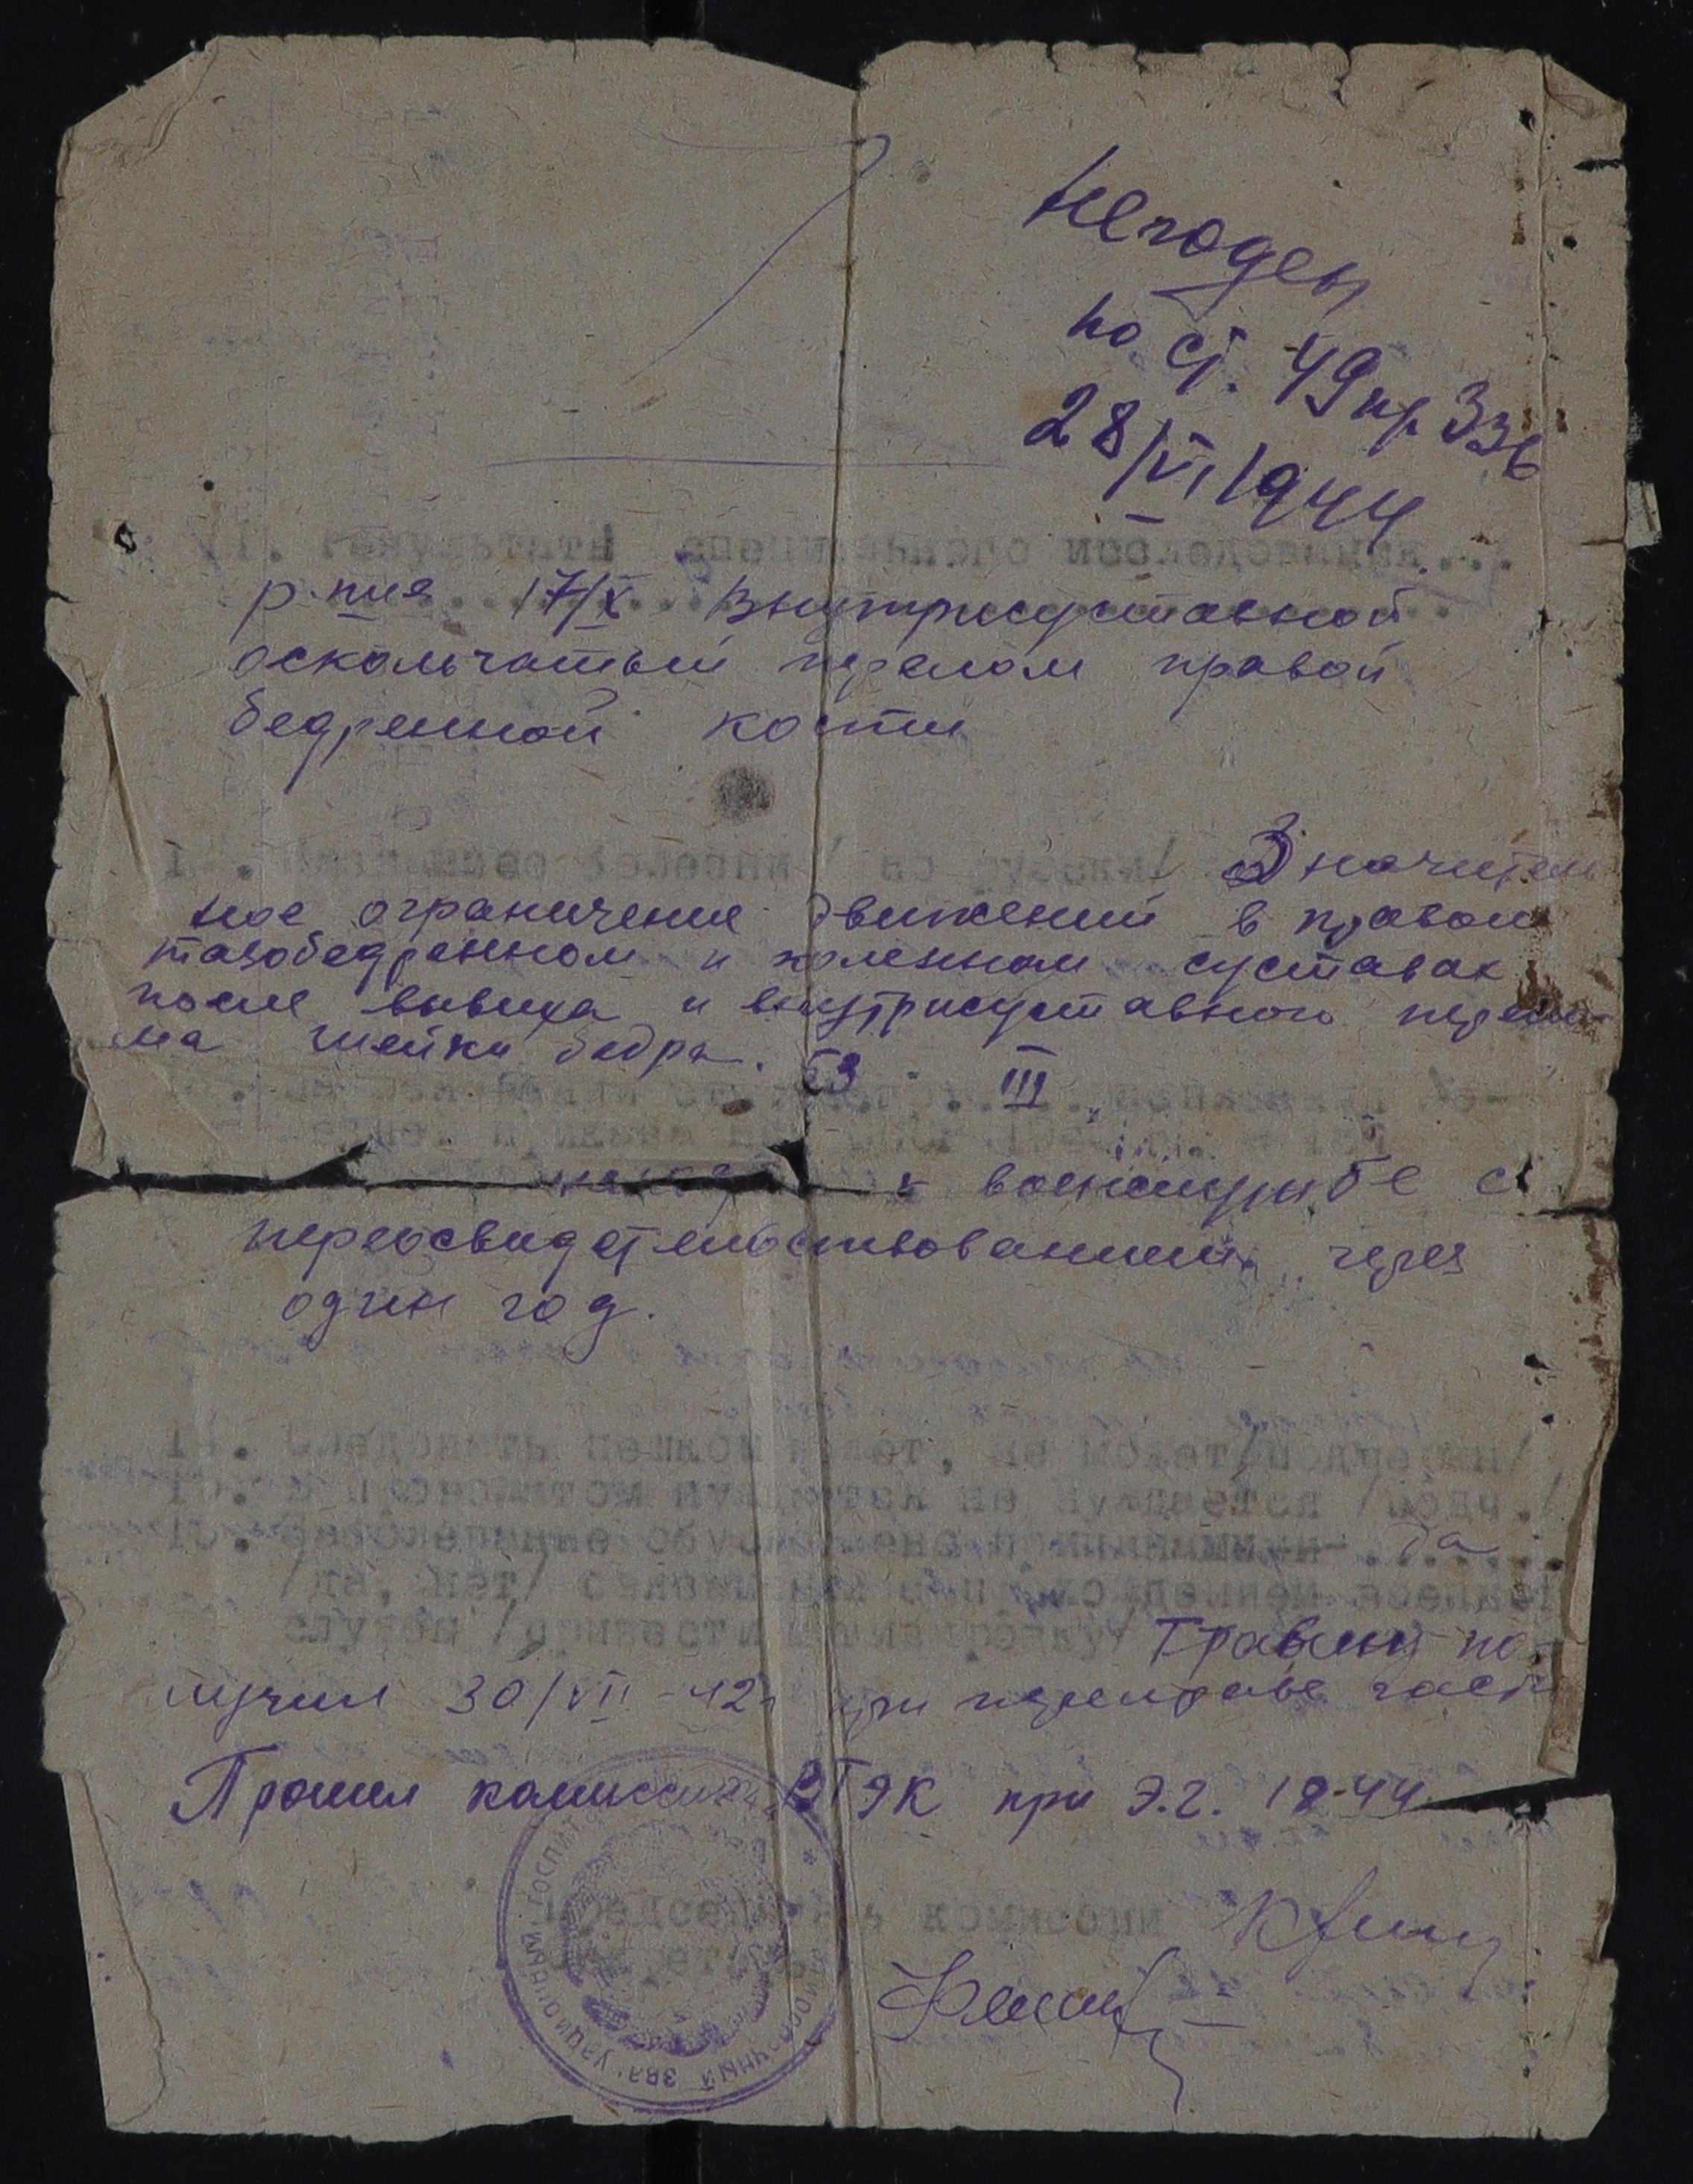 Негоден
по ст. 49 пр 336
28/VI 1944
11. Результаты специального исследования...
р-пия 17/X Внутрисуставной
оскольчатый перелом правой
бедренной кости
Значитель
ное ограничение движений в правом
тазобедренном и коленном суставах
после вывиха и внутрисуставного перело
ма шейки бедра. 
III
к военслужбе с
переосвидетельствованием через
один год.
14. Следовать пешком может, не может/подчеркн/
15. В провожатом нуждается не нуждается /подч./
16. Заболевание обусловлено причинами да
/да, нет/ связанными с прохождением военной
службы /привести Травму по
лучил 30/VII-42г при переправе части
Прошел комиссию ВТЭК при Э.г. 18-44
Председатель комиссии
ЭВАКУАЦИОННЫЙ ГОСПИТ